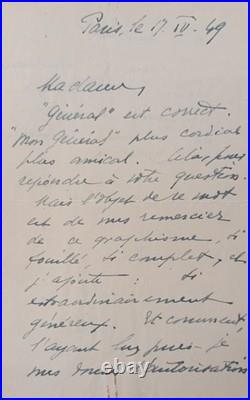 Paris, le 17. IV. 49
Madame,
"Général" est correct.
"Mon Général" plus cordial
plus amical. Cela, pour
répondre à votre question.
Mais l'objet de ce mot
est de vous remercier
de ce graphisme, si
fouillé, si complet, et
j'ajoute : si
extraordinairement
généreux. Et comment,
l'ayant lu, puis-je
vous l'autorisation